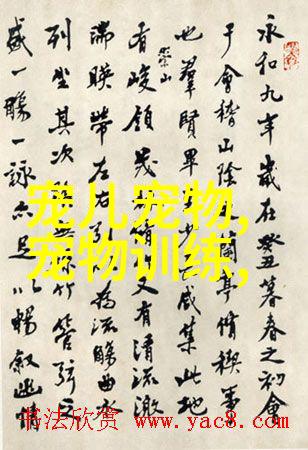 永和九年歲在癸丑暮春之初會
于會稽山陰之蘭亭脩禊事
也羣賢畢至少長咸集此地
有崇山峻領茂林脩竹又有清流激
湍暎帶左右引以為流觴曲水
列坐其次雖無絲竹管弦之
盛一觴一詠亦足以暢敘幽情
宠儿宠物,
宠物训练,
书法欣赏 www.yac8.com